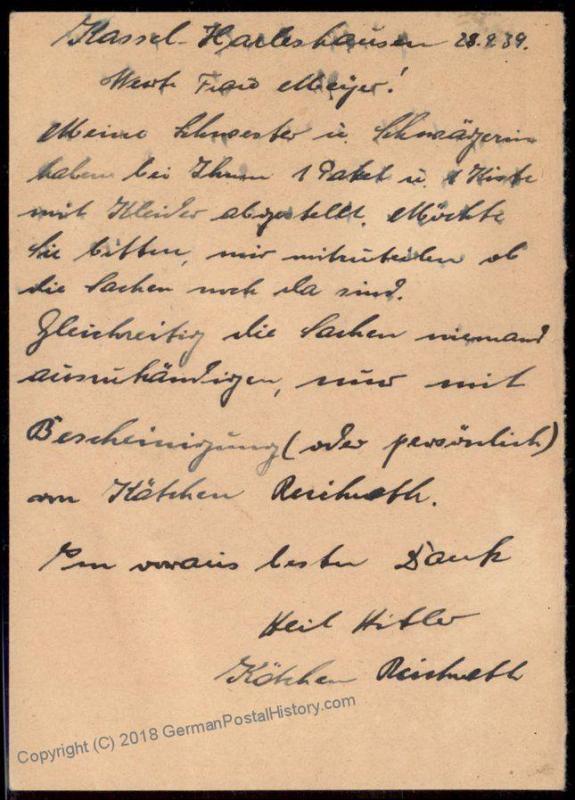 Kassel-Harleshausen 28.9.39.
Werte Frau Meijer!
Meine Schwester u. Schwägerin
haben bei Ihnen 1 Paket u. 1 Kiste
mit Kleider abgestellt. Möchte
Sie bitten, mir mitzuteilen ob
die Sachen noch da sind.
Gleichzeitig die Sachen niemand
auszuhändigen, nur mit
Bescheinigung (oder persönlich)
von Kätchen
Im voraus besten Dank
Heil Hitler
Kätchen
Copyright (C) 2018 GermanPostalHistory.com